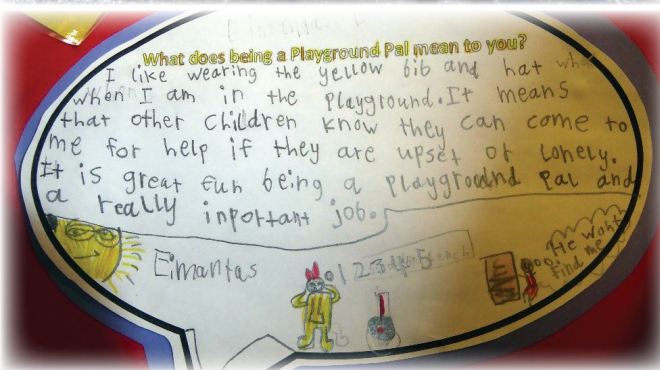 What does being a Playground Pal mean to you?
I like wearing the yellow bib and hat
when I am in the Playground. It means
that other children know they can come to
me for help if they are upset or lonely.
It is great fun being a playground pal and
a really inportant job.
Eimantas
He won't
find me